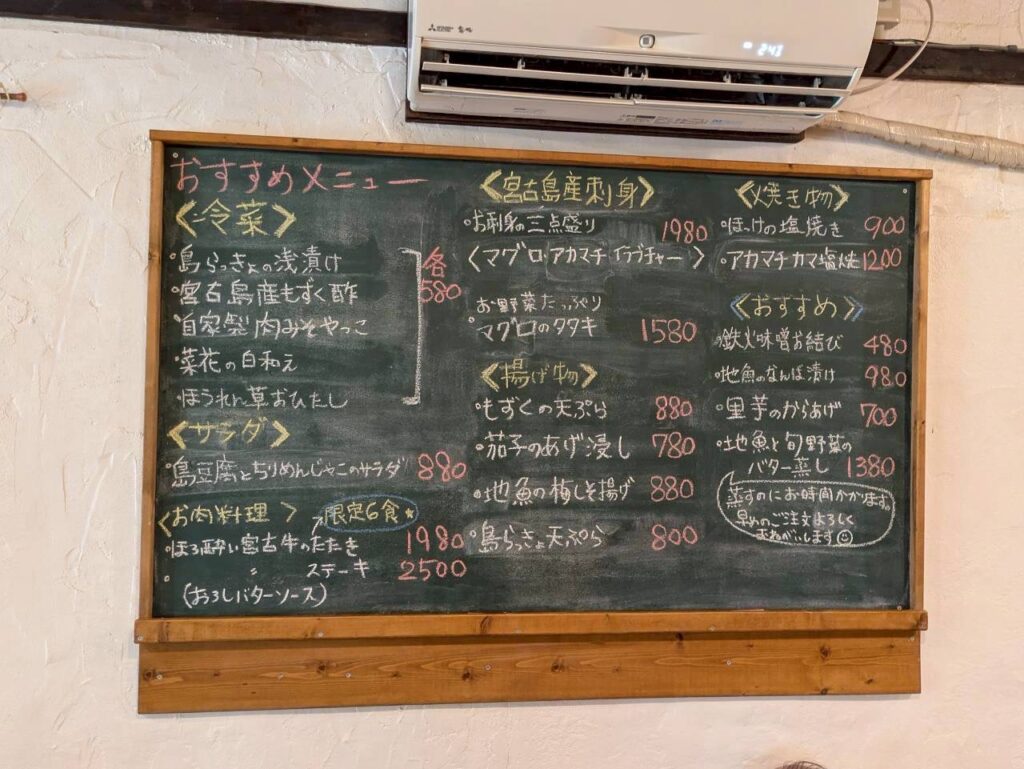 MITSUBISHI
24.1
おすすめメニュー
〈冷菜〉
・島らっきょの浅漬け
・宮古島産もずく酢
・自家製肉みそやっこ
・菜花の白和え
ほうれん草おひたし
各
580
〈サラダ〉
・島豆腐とちりめんじゃこのサラダ 880
〈お肉料理〉 限定6食☆
・ほろ酔い宮古牛のたたき 1980
・〃 ステーキ 2500
(おろしバターソース)
〈宮古島産刺身〉
・お刺身の三点盛り 1980
〈マグロ・アカマチ イラブチャー〉
お野菜たっぷり
・マグロのタタキ 1580
〈揚げ物〉
・もずくの天ぷら 880
・茄子のあげ浸し 780
・地魚の梅しそ揚げ 880
・島らっきょ天ぷら 800
〈焼き物〉
・ほっけの塩焼き 900
・アカマチカマ塩焼 1200
〈おすすめ〉
・鉄火味噌お結び 480
・地魚のなんば漬け 980
・里芋のからあげ 700
・地魚と旬野菜の
バター蒸し 1380
蒸すのにお時間かかります。
早めのご注文よろしく
おねがいします☺